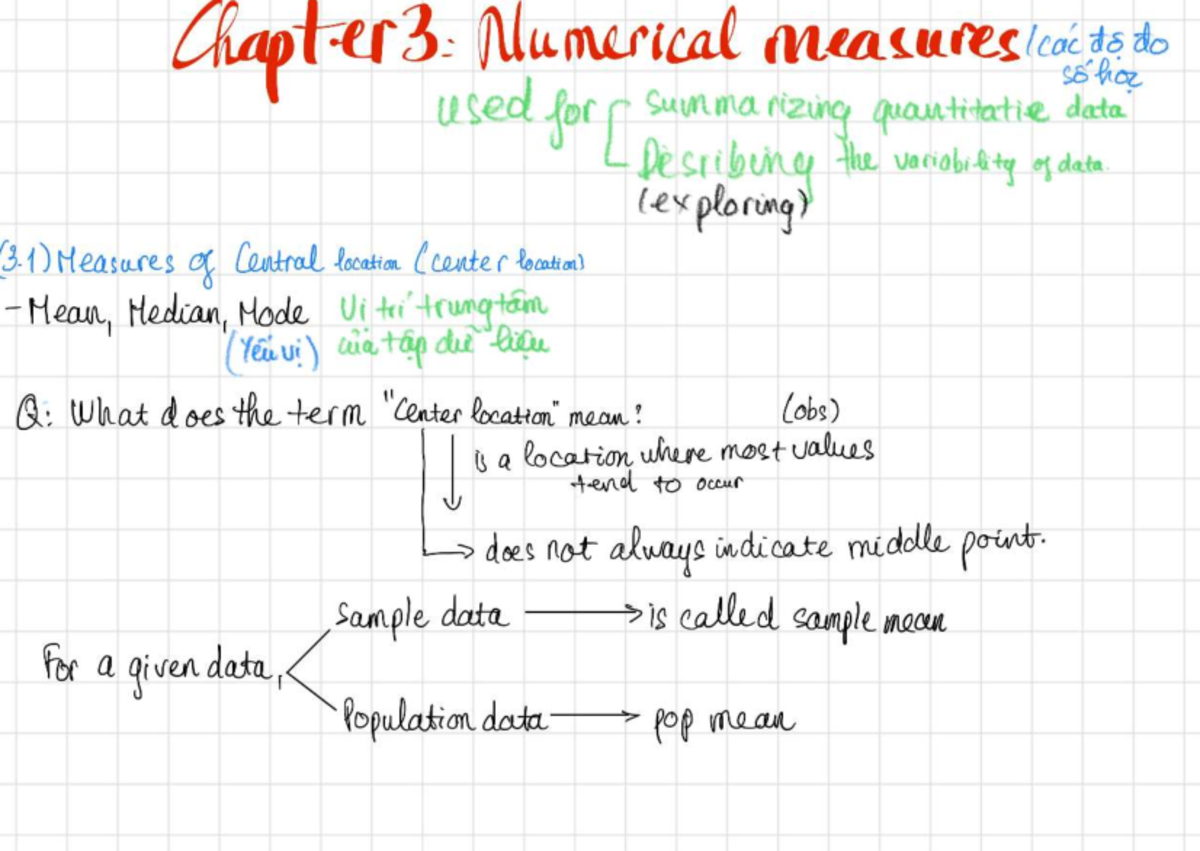 Chapter 3: Numerical measures / các độ đo
số học
used for summarizing quantitatie data
Desribing the variability of data.
(exploring)
(3.1) Measures of Central location (center location)
- Mean, Median, Mode Vị trí trung tâm
(Yếu vị) của tập dữ liệu
Q: What does the term "Center location" mean? (obs)
is a location where most values
tend to occur
does not always indicate middle point.
Sample data → is called sample mean
For a given data,
Population data → pop mean